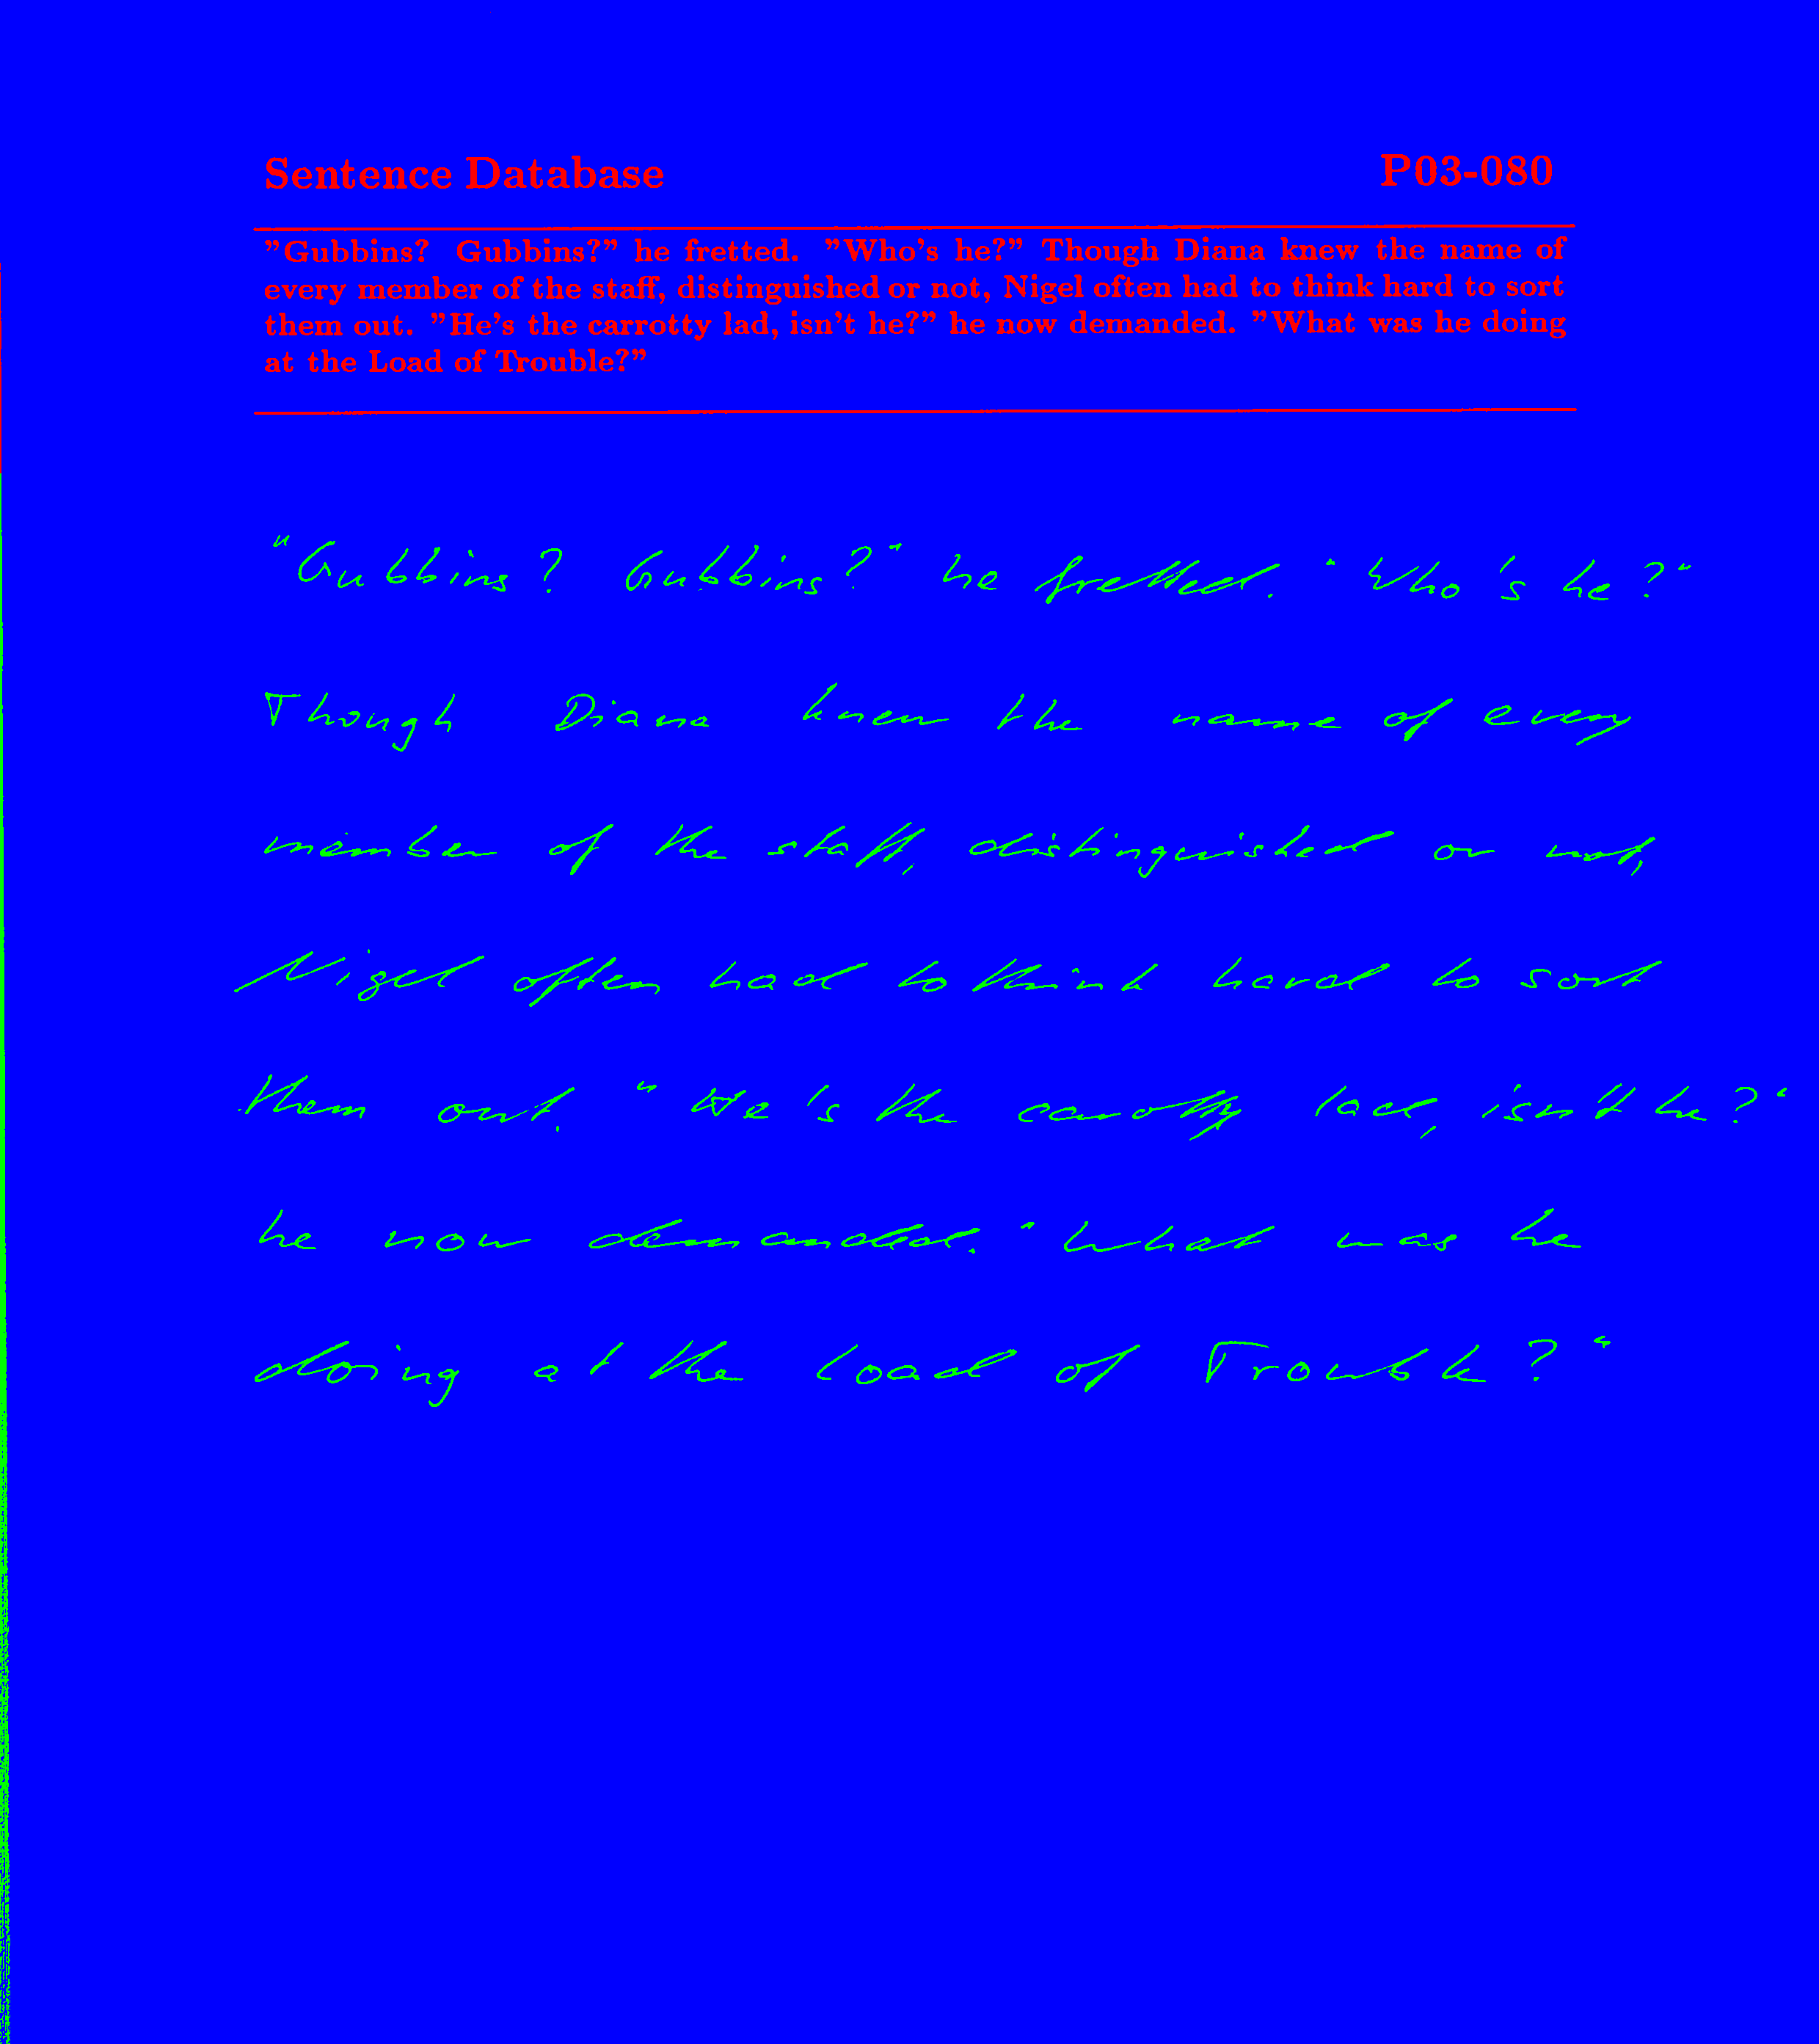 Sentence Database P03-080
"Gubbins? Gubbins?" he fretted. "Who's he?" Though Diana knew the name of
every member of the staff, distinguished or not, Nigel often had to think hard to sort
them out. "He's the carrotty lad, isn't he?" he now demanded. "What was he doing
at the Load of Trouble?"
"Gubbins? Gubbins?" he fretted. "Who's he?"
Though Diana knew the name of every
member of the staff, distinguished or not,
Nigel often had to think hard to sort
them out. "He's the carrotty lad, isn't he?"
he now demanded. "What was he
doing at the Load of Trouble?"